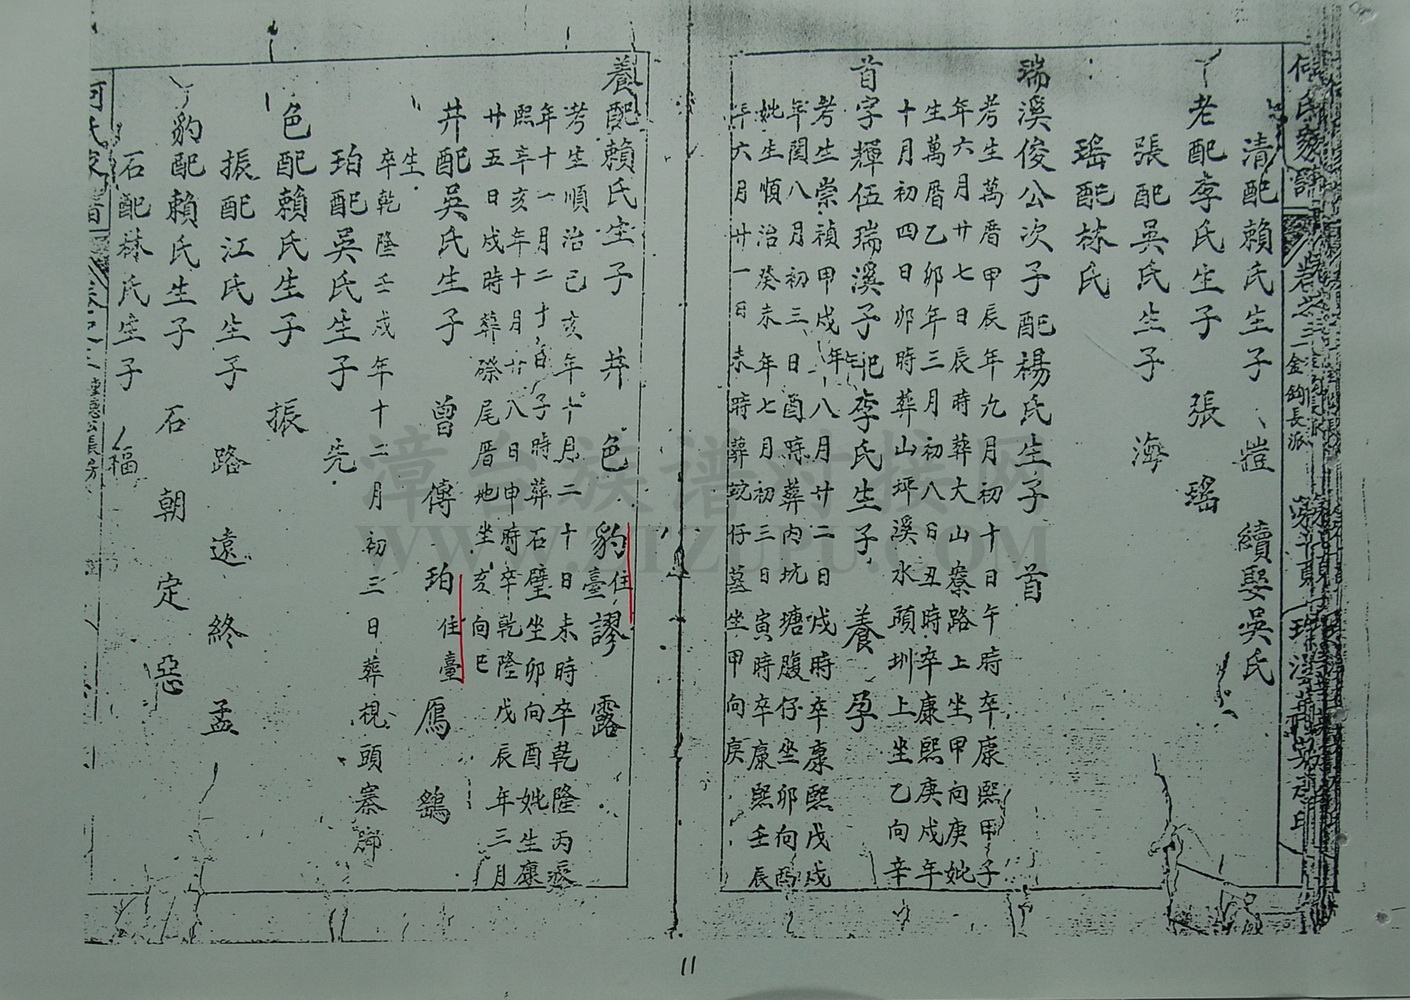 何氏家譜
卷之二
金鉤長派
清配賴氏生子 愷 續娶吳氏
老配李氏生子 張 瑤
張配吳氏生子 海
瑤配林氏
瑞溪俊公次子配楊氏生子 首
考生萬曆甲辰年九月初十日午時卒康熙甲子
年六月廿七日辰時葬大山寮路上坐甲向庚妣
生萬曆乙卯年三月初八日丑時卒康熙庚戌年
十月初四日卯時葬山坪溪水頭圳上坐乙向辛
首字輝伍瑞溪子妣李氏生子 養 孕
考生崇禎甲戌年十八月廿二日戌時卒康熙戊戌
年閏八月初三日酉時葬內坑塘腹仔坐卯向酉
妣生順治癸未年七月初三日寅時卒康熙壬辰
年六月廿一日未時葬 仔墓坐甲向庚
養配賴氏生子 井 色 豹住臺 謬 露
考生順治己亥年十月二十日未時卒乾隆丙辰
年十一月二十日子時葬石壁坐卯向酉妣生康
熙辛亥年十月廿八日申時卒乾隆戊辰年三月
廿五日戌時葬磜尾厝地坐亥向巳
井配吳氏生子 曾 傳 珀住臺 鴈 鷂
生
卒乾隆壬戌年十二月初三日葬枧頭寨
珀配吳氏生子 先
色配賴氏生子 振
振配江氏生子 路 遠 終 孟
豹配賴氏生子 石 朝 定 惡
石配林氏生子 福
何氏家譜
漳台族谱对接网
WWW.ZTZUPU.COM
11